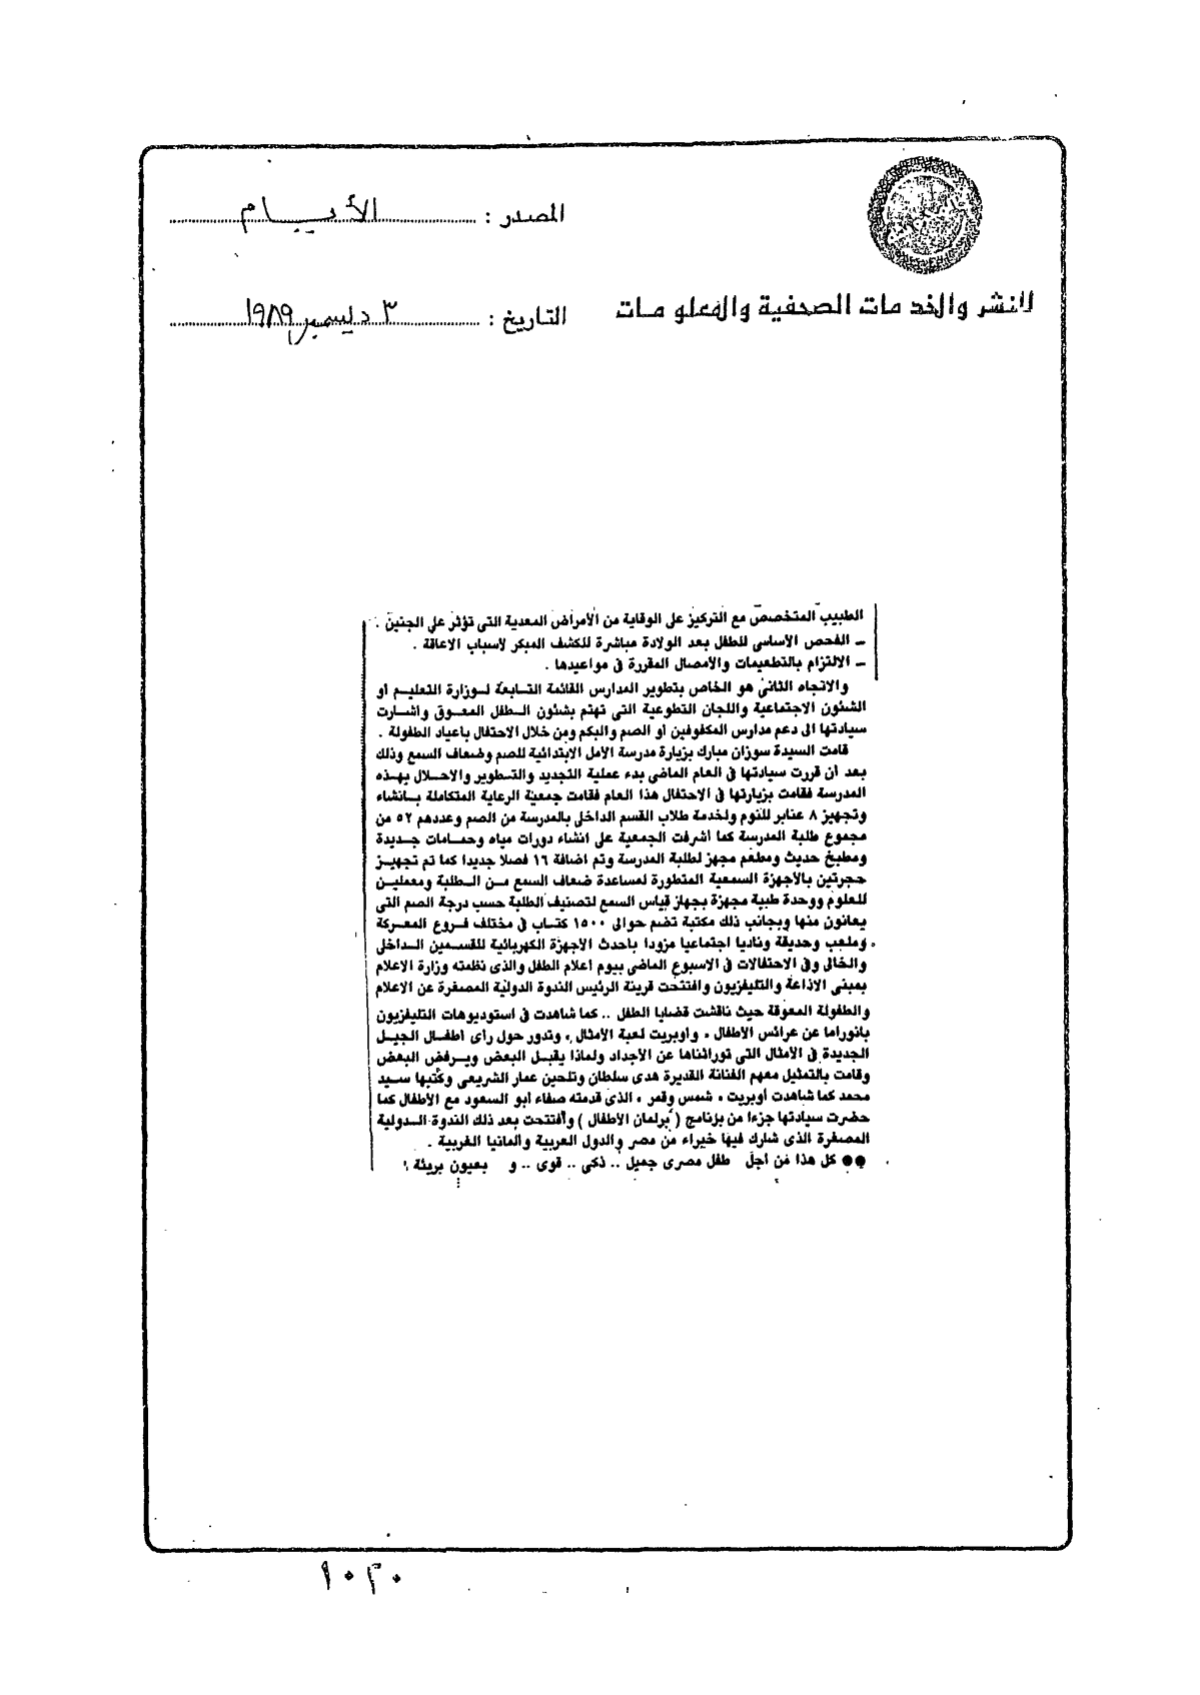 المصدر : الأيام
للنشر والخدمات الصحفية والمعلومات
التاريخ : ٣ ديسمبر ١٩٨٩
الطبيب المتخصص مع التركيز على الوقاية من الأمراض المعدية التى تؤثر على الجنين .
ــ الفحص الأساسى للطفل بعد الولادة مباشرة للكشف المبكر لأسباب الاعاقة .
ــ الالتزام بالتطعيمات والأمصال المقررة فى مواعيدها .
والاتجاه الثانى هو الخاص بتطوير المدارس القائمة التابعة لوزارة التعليم أو
الشئون الاجتماعية واللجان التطوعية التى تهتم بشئون الطفل المعوق واشارت
سيادتها الى دعم مدارس المكفوفين او الصم والبكم ومن خلال الاحتفال باعياد الطفولة .
قامت السيدة سوزان مبارك بزيارة مدرسة الأمل الابتدائية للصم وضعاف السمع وذلك
بعد أن قررت سيادتها فى العام الماضى بدء عملية التجديد والتطوير والاحلال بهذه
المدرسة فقامت بزيارتها فى الاحتفال هذا العام فقامت جمعية الرعاية المتكاملة بانشاء
وتجهيز ٨ عنابر للنوم ولخدمة طلاب القسم الداخلى بالمدرسة من الصم وعددهم ٥٢ من
مجموع طلبة المدرسة كما أشرفت الجمعية على انشاء دورات مياه وحمامات جديدة
ومطبخ حديث ومطعم مجهز لطلبة المدرسة وتم اضافة ١٦ فصلا جديدا كما تم تجهيز
حجرتين بالأجهزة السمعية المتطورة لمساعدة ضعاف السمع من الطلبة ومعملين
للعلوم ووحدة طبية مجهزة بجهاز قياس السمع لتصنيف الطلبة حسب درجة الصم التى
يعانون منها وبجانب ذلك مكتبة تضم حوالى ١٥٠٠ كتاب فى مختلف فروع المعركة
وملعب وحديقة وناديا اجتماعيا مزودا باحدث الأجهزة الكهربائية للقسمين الداخلى
والخالى وفى الاحتفالات فى الاسبوع الماضى بيوم أعلام الطفل والذى نظمته وزارة الاعلام
بمبنى الاذاعة والتليفزيون وافتتحت قرينة الرئيس الندوة الدولية المصغرة عن الاعلام
والطفولة المعوقة حيث ناقشت قضايا الطفل .. كما شاهدت فى استوديوهات التليفزيون
بانوراما عن عرائس الأطفال ، وأوبريت لعبة الأمثال ، وتدور حول رأى أطفال الجيل
الجديدة فى الأمثال التى توراثناها عن الأجداد ولماذا يقبل البعض ويرفض البعض
وقامت بالتمثيل معهم الفنانة القديرة هدى سلطان وتلحين عمار الشريعى وكتبها سيد
محمد كما شاهدت أوبريت ، شمس وقمر ، الذى قدمته صفاء أبو السعود مع الأطفال كما
حضرت سيادتها جزءا من برنامج ( برلمان الأطفال ) وأفتتحت بعد ذلك الندوة الدولية
المصغرة الذى شارك فيها خبراء من مصر والدول العربية وألمانيا الغربية .
●● كل هذا من أجل طفل مصرى جميل .. ذكى .. قوى .. و بعيون بريئة !